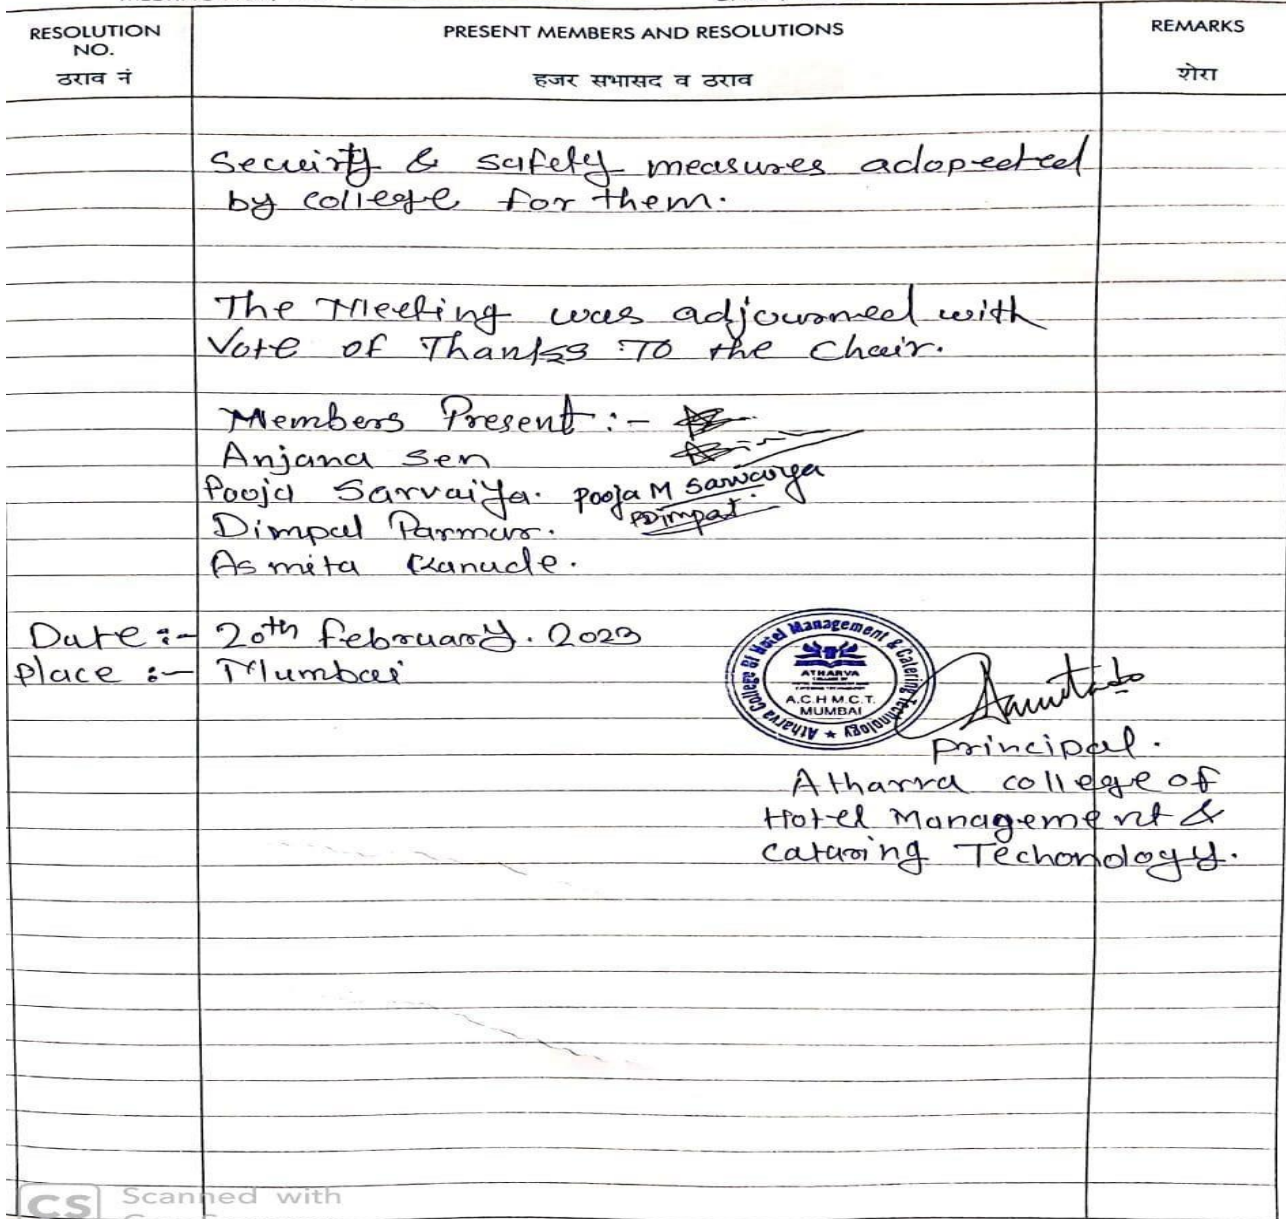 RESOLUTION NO.
ठराव नं
PRESENT MEMBERS AND RESOLUTIONS
हजर सभासद व ठराव
REMARKS
शेरा
Secuirty & safety measures adopeeted
by college for them.
The Meeting was adjourned with
Vote of Thanks To the Chair.
Members Present :-
Anjana Sen
Pooja Sarvaiya. Pooja M Sarvaiya
Dimpal Parmar. Dimpal
Asmita Kanade.
Date :- 20th February. 2023
Place :- Mumbai
Atharva College of Hotel Management & Catering Technology
ATHARVA
A.C.H M.C.T.
MUMBAI
Principal.
Atharva college of
Hotel Management &
Cataring Techonology.
CS Scanned with